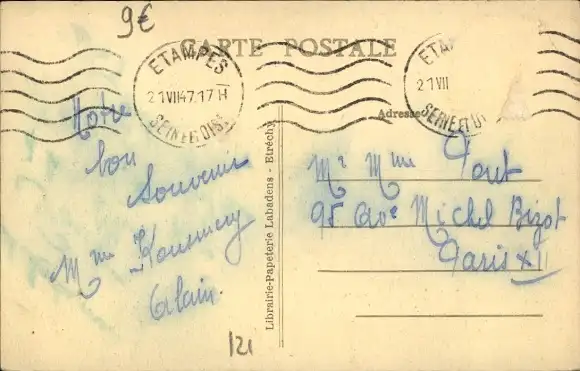 9€
CARTE POSTALE
ETAMPES
21 VII 47. 17 H
SEINE ET OISE
ETAM
21 VII
SEINE ET OI
Adresse
Notre
bon
Souvenir
Mme
Alain.
Mr Mme
95 Ave Michel Bizot
Paris XII
Librairie-Papeterie Labadens - Etréchy
121